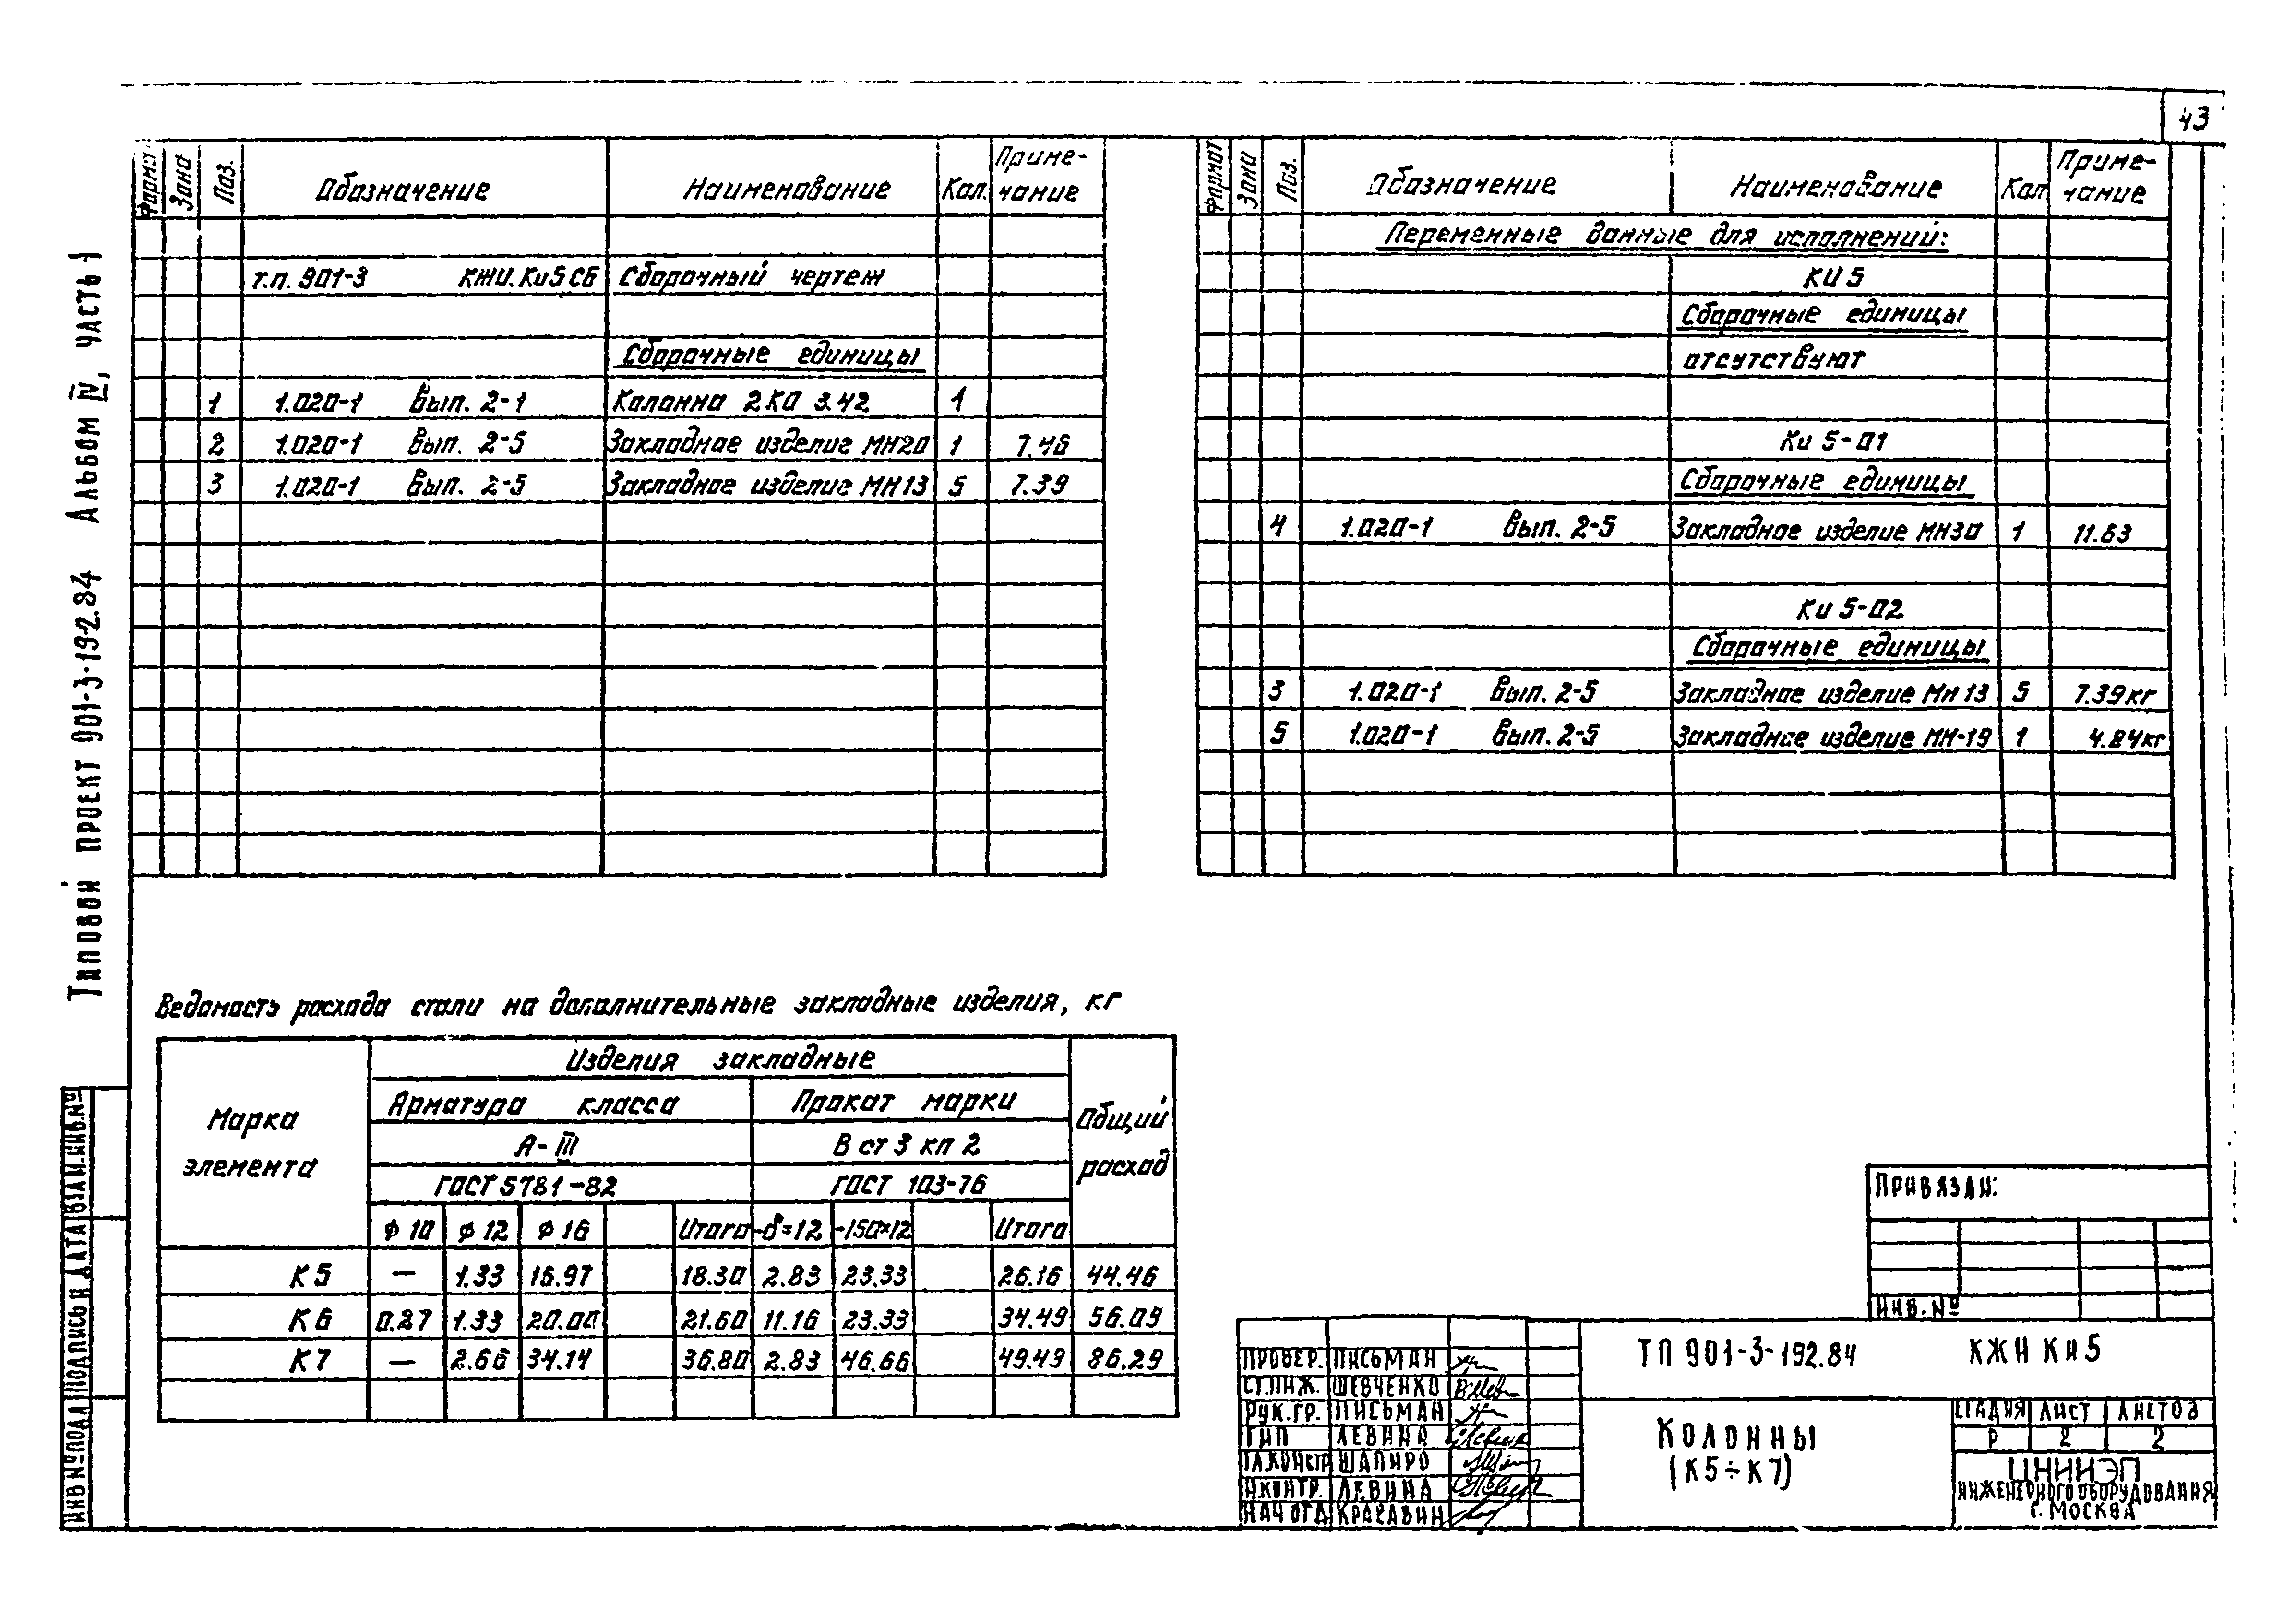 43
Типовой проект 901-3-192.84 Альбом IV, часть 1
Формат Зона Поз. Обозначение Наименование Кол. Приме-чание
т.п. 901-3 КЖИ.Ки5СБ Сборочный чертеж
Сборочные единицы
1 1.020-1 Вып. 2-1 Колонна 2КО 3.42 1
2 1.020-1 Вып. 2-5 Закладное изделие МН20 1 7.46
3 1.020-1 Вып. 2-5 Закладное изделие МН13 5 7.39
Формат Зона Поз. Обозначение Наименование Кол Приме-чание
Переменные данные для исполнений:
КИ 5
Сборочные единицы
отсутствуют
Ки 5-01
Сборочные единицы
4 1.020-1 Вып. 2-5 Закладное изделие МН30 1 11.63
Ки 5-02
Сборочные единицы
3 1.020-1 Вып. 2-5 Закладное изделие Мн 13 5 7.39кг
5 1.020-1 Вып. 2-5 Закладное изделие МН-19 1 4.84кг
Ведомость расхода стали на дополнительные закладные изделия, кг
Марка элемента
Изделия закладные
Общий расход
Арматура класса Прокат марки
А-III В ст 3 кп 2
ГОСТ 5781-82 ГОСТ 103-76
ϕ 10 ϕ 12 ϕ 16 Итого -δ=12 -150×12 Итого
К5 — 1.33 16.97 18.30 2.83 23.33 26.16 44.46
К6 0.27 1.33 20.00 21.60 11.16 23.33 34.49 56.09
К7 — 2.66 34.14 36.80 2.83 46.66 49.49 86.29
Привязан:
Инв. №
Провер. Письман
Ст.инж. Шевченко
Рук.гр. Письман
ГИП Левина
Гл.констр Шапиро
Н.контр. Левина
Нач отд Красавин
ТП 901-3-192.84 КЖИ Ки5
Колонны
(К5÷К7)
Стадия Лист Листов
Р 2 2
ЦНИИЭП
инженерного оборудования
г. Москва
Инв № подл Подпись и дата Взам.инв.№